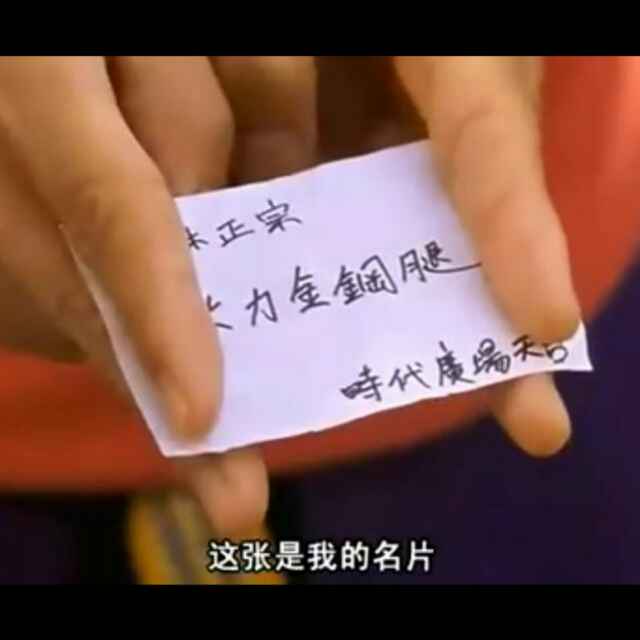 正宗
力金鋼腿
時代廣場天台
这张是我的名片